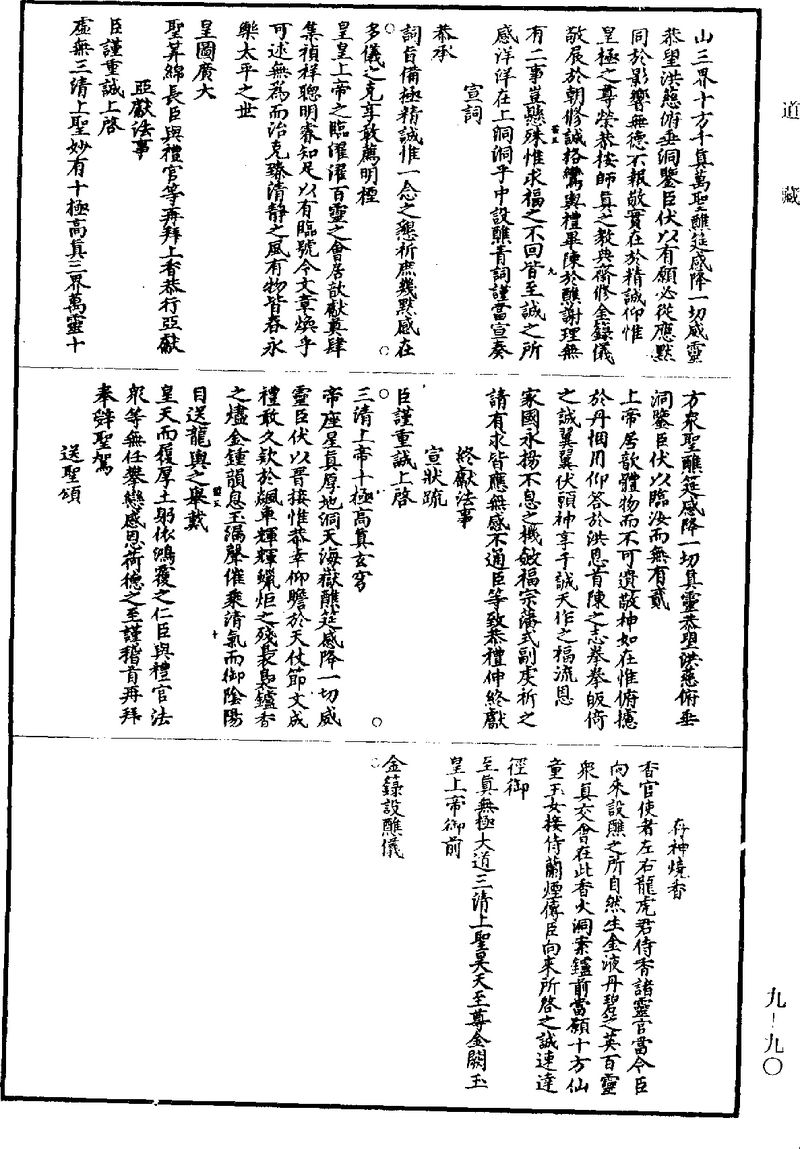 道藏
山三界十方千真萬聖醮筵感降一切威靈
恭望洪慈俯垂洞鑒臣伏以有願必從應默
同於影響無德不報敬實在於精誠仰惟
皇極之尊榮恭按師真之教典齋修金籙儀
敬展於朝修誠格鸞輿禮畢陳於醮謝理無
有二事豈懸殊惟求福之不回皆至誠之所
感洋洋在上洞洞乎中設醮青詞謹當宣奏
宣詞
恭承
詞旨備極精誠惟一念之懇祈庶幾默感在
多儀之克享敢薦明禋
皇皇上帝之臨濯濯百靈之會居歆獻奠肆
集禎祥聰明睿知足以有臨號令文章煥乎
可述無為而治克臻清靜之風有物皆春永
樂太平之世
皇圖廣大
聖筭綿長臣與禮官等再拜上香恭行亞獻
亞獻法事
臣謹重誠上啓
虛無三清上聖妙有十極高真三界萬靈十
方眾聖醮筵感降一切真靈恭望洪慈俯垂
洞鑒臣伏以臨汝而無有貳
上帝居歆體物而不可遺敬神如在惟俯攄
於丹悃用仰答於洪恩首陳之志拳拳皈倚
之誠翼翼伏願神享于誠天作之福流恩
家國永揚不息之機敏福宗藩式副虔祈之
請有求皆應無感不通臣等致恭禮伸終獻
終獻法事
宣狀疏
臣謹重誠上啓
三清上帝十極高真玄穹
帝座星真厚地洞天海嶽醮筵感降一切威
靈臣伏以晋接惟恭幸仰瞻於天仗節文成
禮敢久欽於飆車輝輝蠟炬之殘裊裊鑪香
之燼金鍾韻息玉漏聲催乘清氣而御陰陽
目送龍輿之舉戴
皇天而履厚土躬依鴻覆之仁臣與禮官法
眾等無任攀戀感恩荷德之至謹稽首再拜
奉辭聖駕
送聖頌
存神燒香
香官使者左右龍虎君侍香諸靈官當令臣
向來設醮之所自然生金液丹碧芝英百靈
眾真交會在此香火洞案鑪前當願十方仙
童玉女接侍蘭煙傳臣向來所啓之誠速達
徑御
至真無極大道三清上聖昊天至尊金闕玉
皇上帝御前
金籙設醮儀
九–九〇